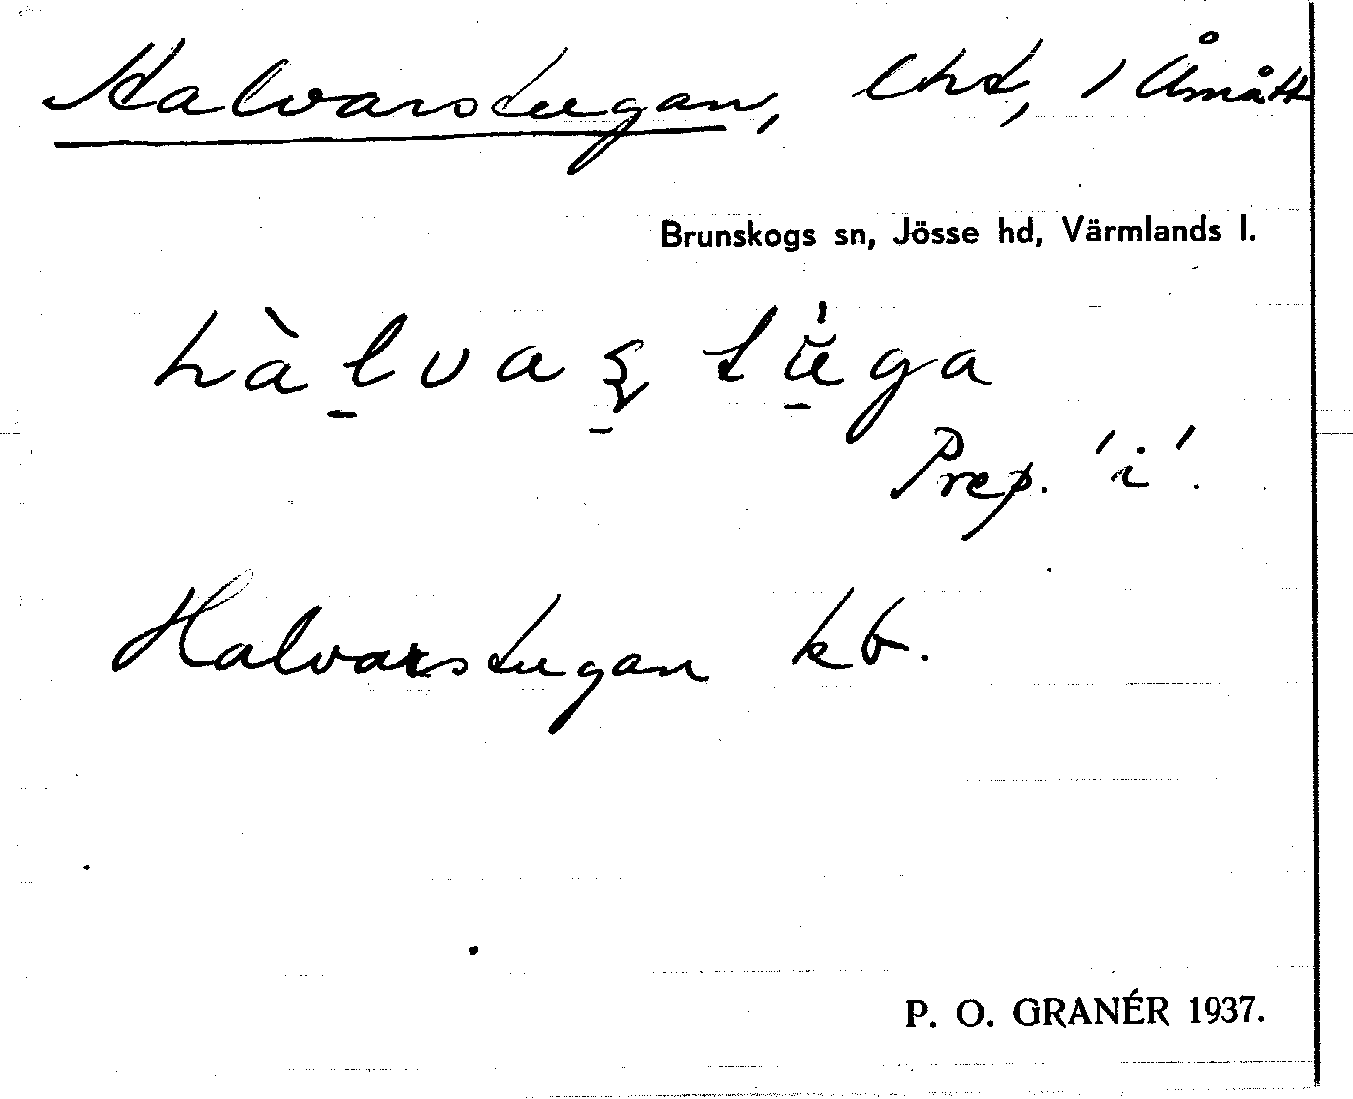 Halvarstugan, lht, 1 Åmått
Brunskogs sn, Jösse hd, Värmlands l.
Prep. 'i'.
Halvarstugan kb.
P. O. GRANÉR 1937.